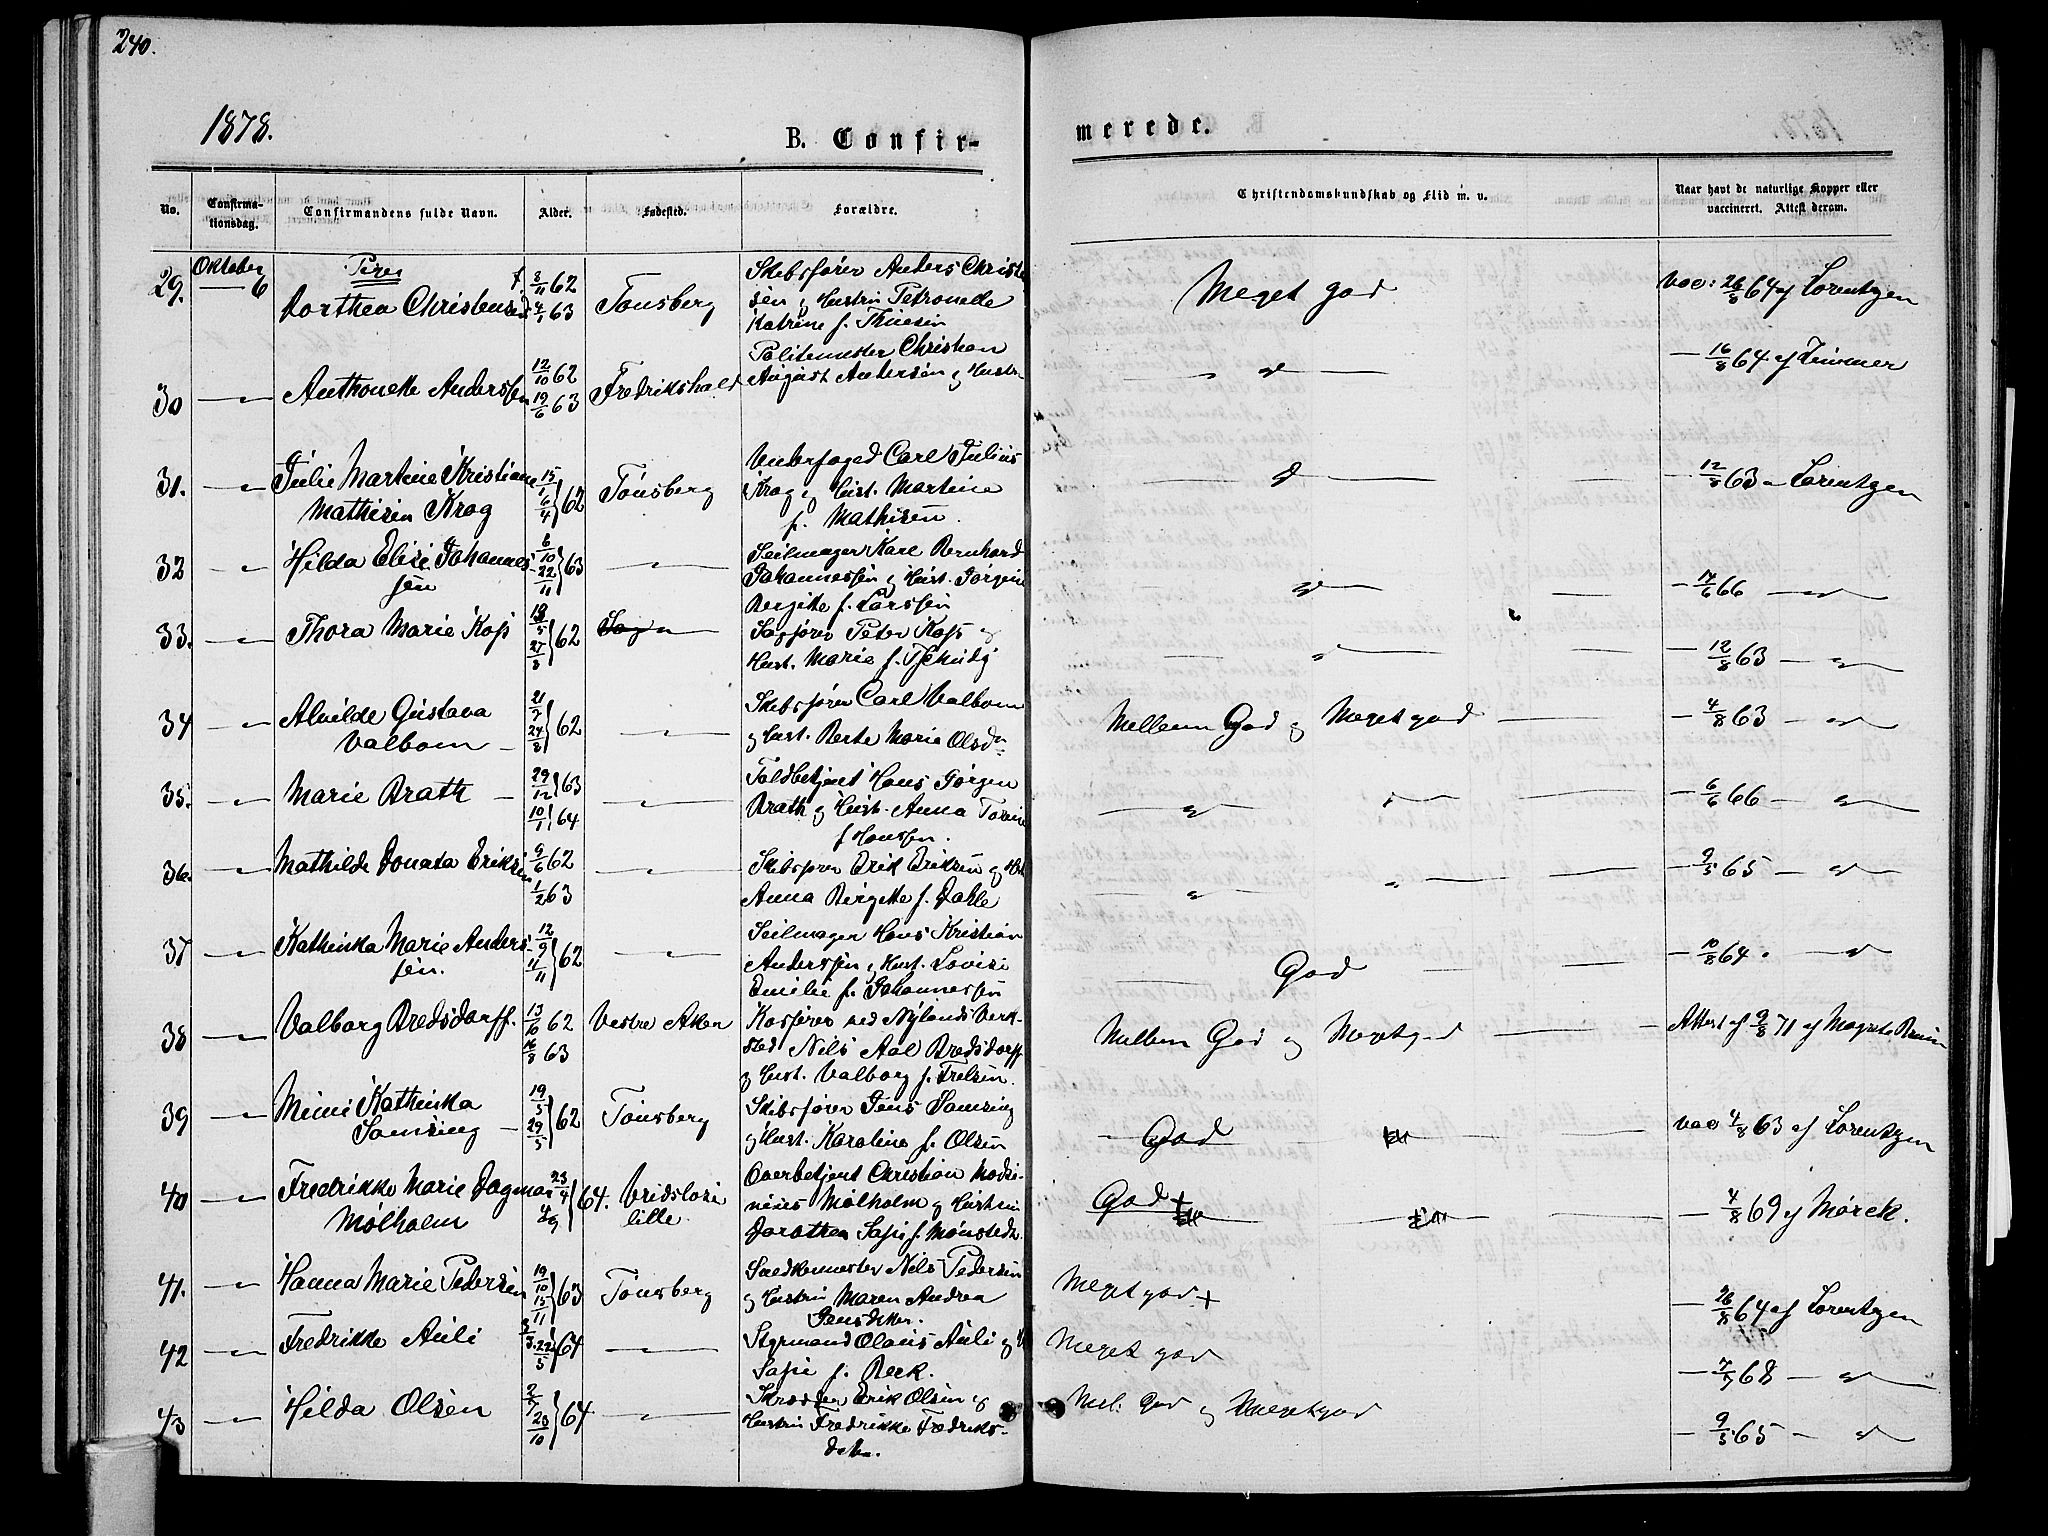 240.
1878.
B. Confir-
merede.
No.
Confirma-
tionsdag.
Confirmandens fulde Navn.
Alder.
Fødested.
Forældre.
Christendomskundskab og Flid m. v.
Naar havt de naturlige Kopper eller
vaccineret. Attest derom.
Oktober
Piger
29. 6 Dorthea Christensen f. 8/11 62 4/1 63 Tønsberg
Skibsfører Anders Christen
sen og Hustru Petronelle
Katrine f. Thuesen
Meget god
vac: 26/8 64 af Lorentzen
30 Anthonette Anderssen 12/10 62 19/6 63 Fredrikshald
Politimester Christian
August Andersen og Hustr
16/8 64 af
31. Julie Martine Kristiane
Mathisen Krog 15/1 6/4 62 Tønsberg
Underfoged Carl Julius
Krog og Hust. Martine
f. Mathisen.
12/8 63 Lorentzen
32 Hilda Elise Johannes
sen 6/10 22/11 63
Seilmager Karl Bernhard
Johannessen og Hust. Jørgine
Bergitte f. Larssen
14/6 66
33. Thora Marie Koss 18/5 27/8 62
Sagfører Peter Koss og
Hust. Marie f. Tschudy
12/8 63
34 Alvilde Gustava
Valbom 21/7 24/8 62
Skibsfører Carl Valbom
og Hust. Berte Marie Olsdr
Mellem God og Megetgod
4/8 63
35. Marie Brath 29/12 63 10/1 64
Toldbetjent Hans Jørgen
Brath og Hust. Anna Torine
f Hanssen.
6/6 66
36. Mathilde Donata Eriksen 9/6 62 1/2 63
Skibsfører Erik Eriksen og Hst
Anna Birgitte f. Dahle
9/5 65
37 Kathinka Marie Anders
sen. 12/9 11/11 62
Seilmager Hans Kristian
Anderssen og Hust. Lovise
Emilie f. Johannessen
God
10/8 64.
38 Valborg Bredsdorff. 13/10 62 16/8 63 Vestre Aker
Kasserer ved Nylands Verk-
sted Nils Aal Bredsdorff
og Hust. Valborg f. Frelsen.
Mellem God og Megetgod
Attest af 9/8 71 af
39 Mimi Kathinka
Samsing 19/3 29/5 62 Tønsberg
Skibsfører Jens Samsing
og Hust. Karoline f. Olsen
God
vac 4/8 63 af Lorentzen
40 Fredrikke Marie Dagmar
Mølholm 23/4 64. Vridsløse
lille.
Overbetjent Christian
Mølholm og Hustru
Dorothea Sofie f. Mønsted
God +
4/8 69 af Mørck.
41. Hanna Marie Pedersen 19/10 15/11 63 Tønsberg
Snedkermester Nels Pedersen
og Hustru Maren Andrea
Jensdtter.
Meget god +
26/8 64 af Lorentzen
42 Fredrikke Auli 3/3. 22/5 64
Styrmand Olaus Auli og H
Sofie f. Berk.
Meget god
7/7 68
43 Hilda Olsen 2/7 23/10 64
Skrædder Erik Olsen og
Hustru Fredrikke Fredriks-
datter.
Mel. God og Megetgod
9/5 65